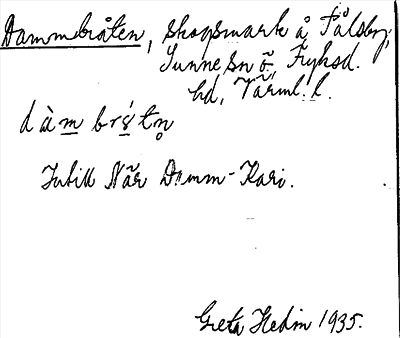 Dammbråten, skogsmark å Tålsby,
Sunne sn ö, Fryksd.
hd, Värml. l.
dàm brs̀tn̥
Intill När Damm-Kari.
Greta Hedin 1935.